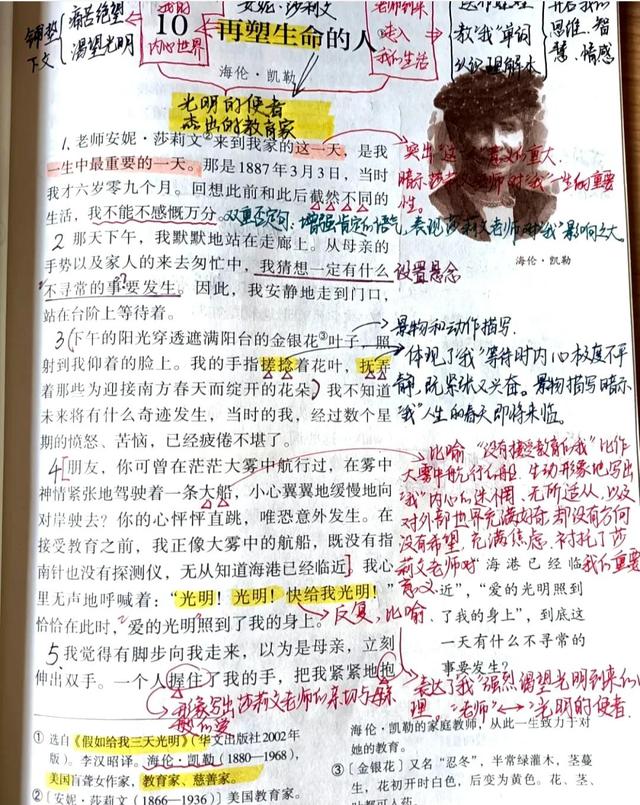 铺垫下文
痛苦绝望
渴望光明
我的
内心世界
安妮·莎莉文
老师到来
进入
我们生活
教"我"单词
认识理解
开启我们
思维、智
慧、情感
10 再塑生命的人
海伦·凯勒
光明的使者
杰出的教育家
1、老师安妮·莎莉文②来到我家的这一天，是我
一生中最重要的一天。那是1887年3月3日，当时
我才六岁零九个月。回想此前和此后截然不同的
生活，我不能不感慨万分。双重否定句，增强肯定的语气，表现莎莉文老师对"我"影响之大
突出"这一天"意义的重大，
暗示莎莉文老师对"我"一生的重要
性。
海伦·凯勒
2 那天下午，我默默地站在走廊上。从母亲的
手势以及家人的来去匆忙中，我猜想一定有什么 设置悬念
不寻常的事要发生。因此，我安静地走到门口，
站在台阶上等待着。
3 下午的阳光穿透遮满阳台的金银花③叶子，照
射到我仰着的脸上。我的手指搓捻着花叶，抚弄
着那些为迎接南方春天而绽开的花朵。我不知道
未来将有什么奇迹发生，当时的我，经过数个星
期的愤怒、苦恼，已经疲倦不堪了。
景物和动作描写．
体现了"我"等待时内心极度不平
静，既紧张又兴奋。景物描写暗示
"我"人生的春天即将来临。
4 朋友，你可曾在茫茫大雾中航行过，在雾中
神情紧张地驾驶着一条大船，小心翼翼地缓慢地向
对岸驶去？你的心怦怦直跳，唯恐意外发生。在
接受教育之前，我正像大雾中的航船，既没有指
南针也没有探测仪，无从知道海港已经临近。我心
里无声地呼喊着："光明！光明！快给我光明！"
恰恰在此时，爱的光明照到了我的身上。
比喻 "没有接受教育的我"比作
大雾中航行的船，生动形象地写出
"我"内心的迷惘、无所适从，以及
对外部世界充满好奇，却没有方向
没有希望，充满焦虑，衬托了莎
莉文老师对我们重要
意义
海港已经临
近"，"爱的光明照到
了我的身上"，到底这
一天有什么不寻常的
事要发生？
反复，比喻
5 我觉得有脚步向我走来，以为是母亲，立刻
伸出双手。一个人握住了我的手，把我紧紧地抱
形象写出莎莉文老师的亲切与母亲
般的爱
表达了"我"强烈渴望光明到来的心
理，"老师"⟷"光明的使者
① 选自《假如给我三天光明》（华文出版社2002年
版）。李汉昭译。海伦·凯勒（1880—1968），
美国盲聋女作家，教育家、慈善家。
②〔安妮·莎莉文（1866—1936）〕美国教育家。
海伦·凯勒的家庭教师，从此一生致力于对
她的教育。
③〔金银花〕又名"忍冬"，半常绿灌木，茎蔓
生，花初开时白色，后变为黄色。花、茎、